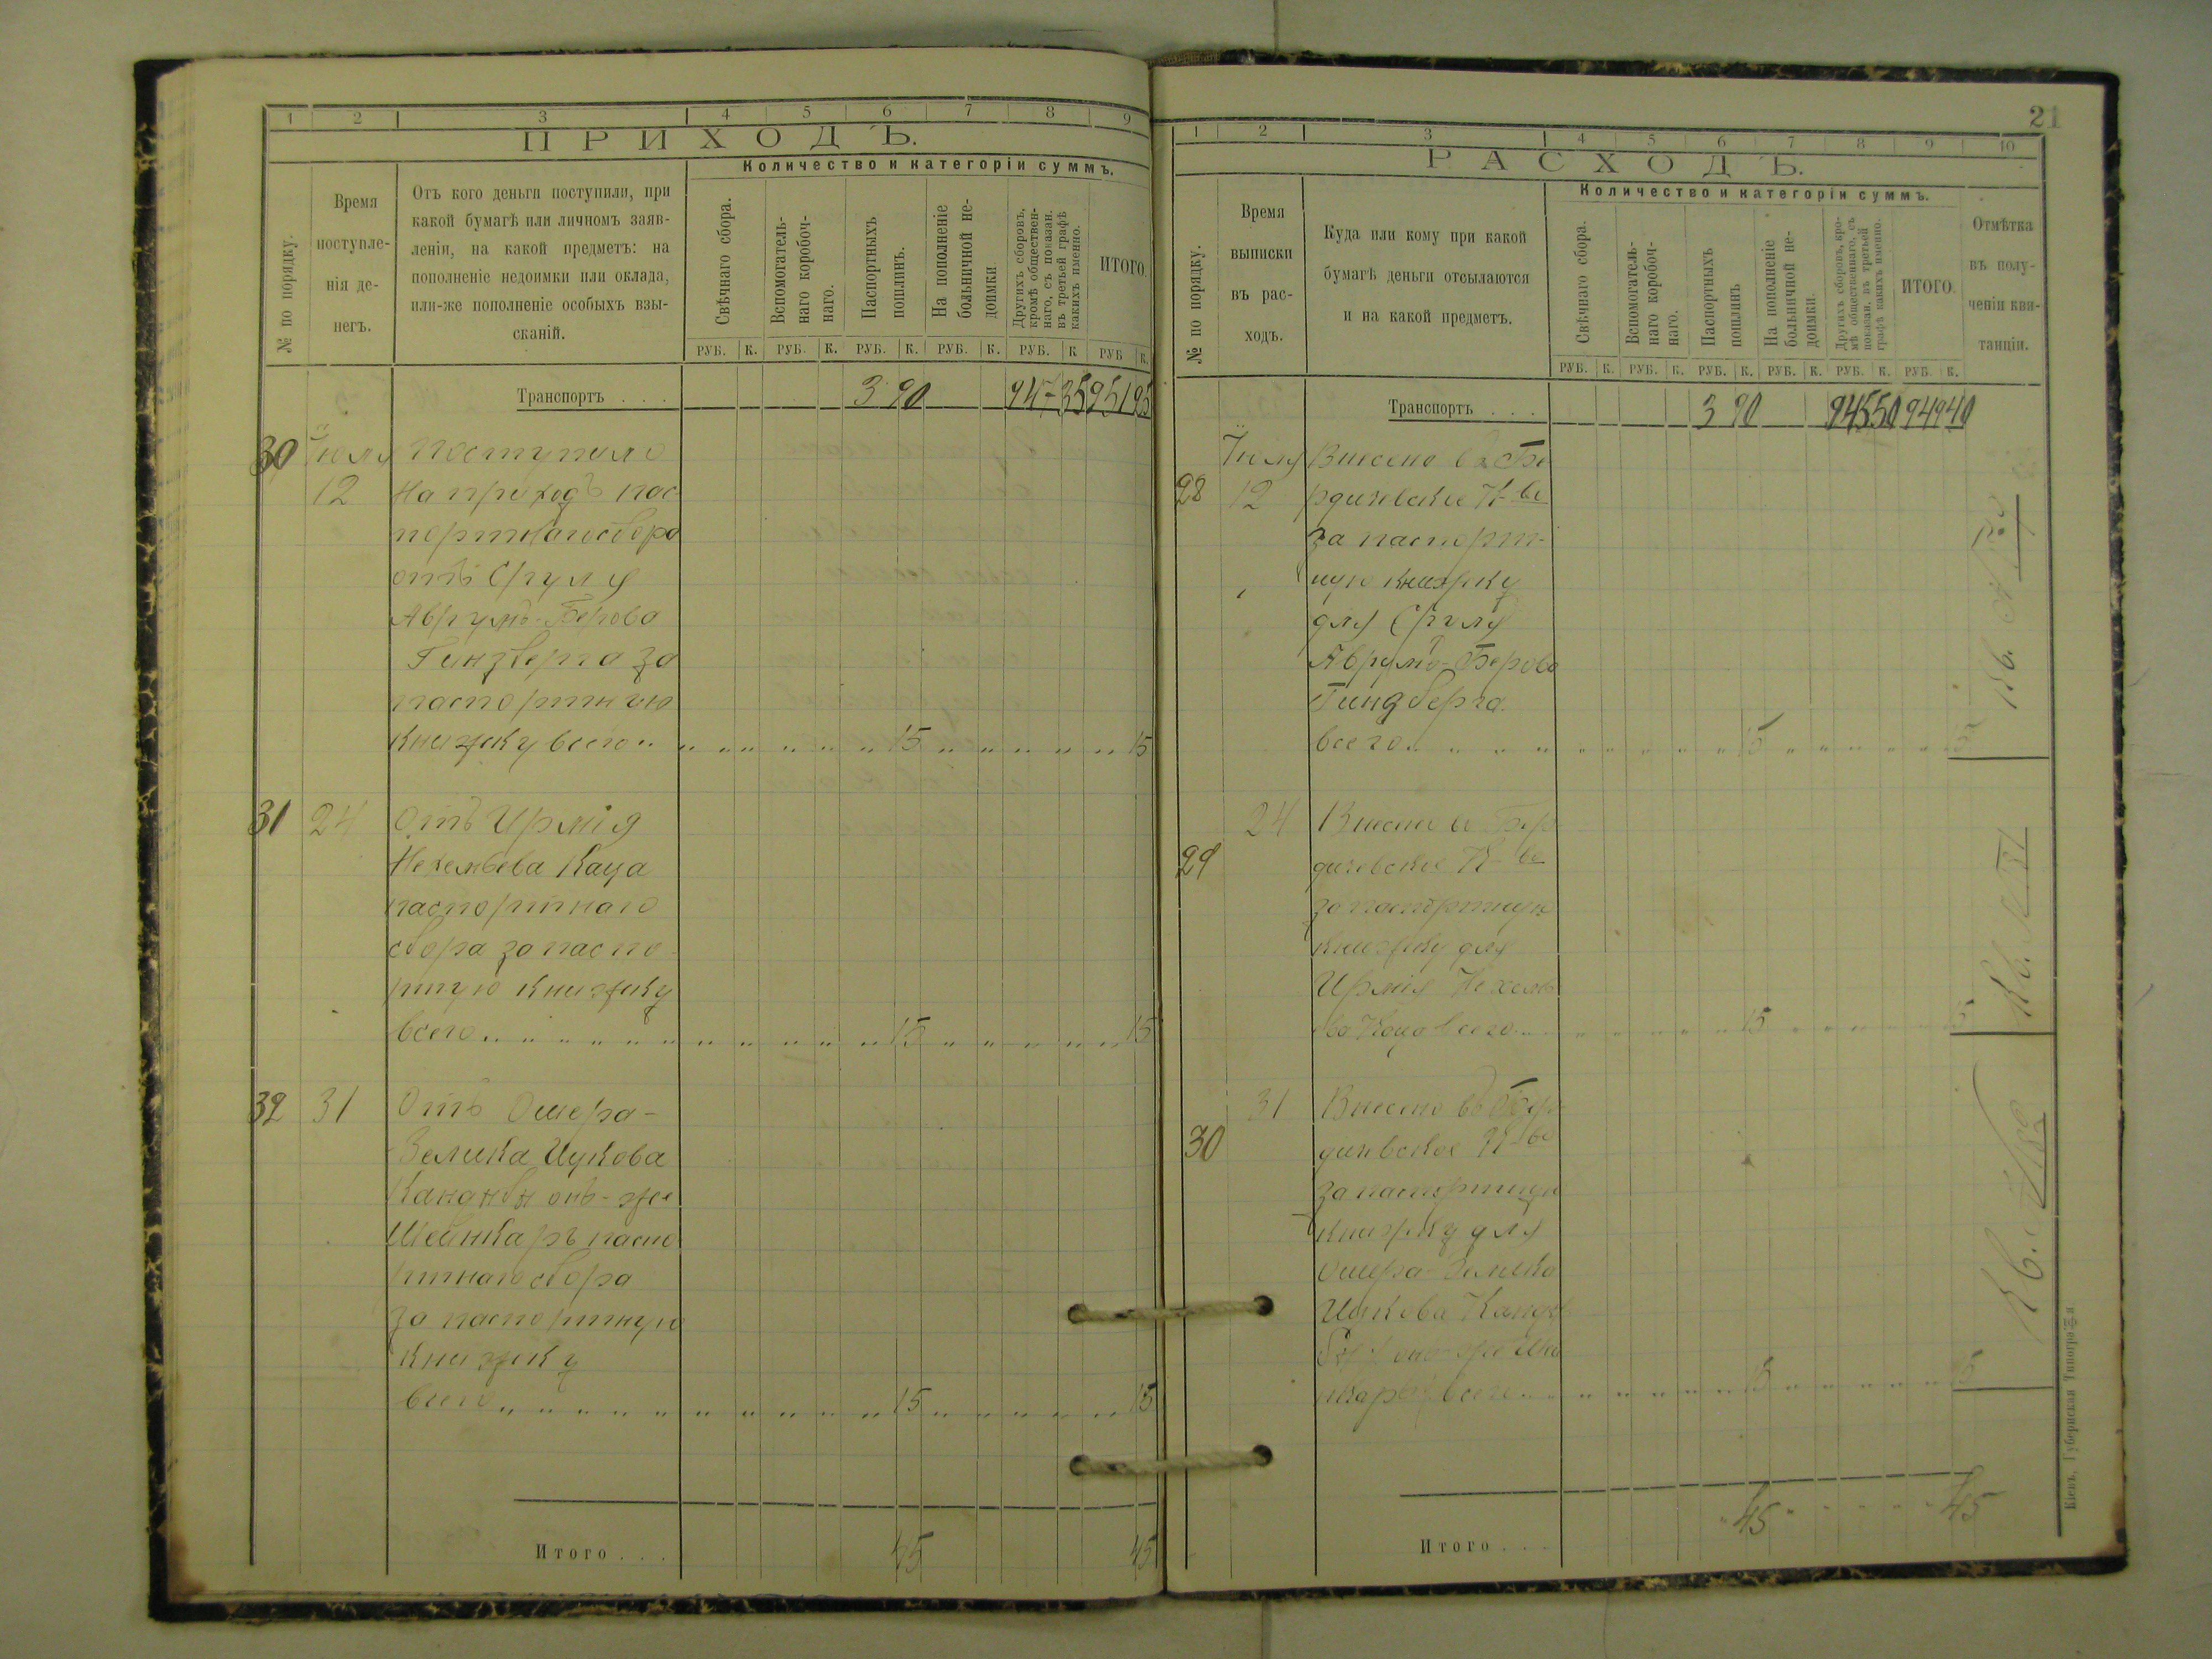 1 2 3 4 5 6 7 8 9
ПРИХОДЪ.
Количество и категоріи суммъ.
№ по порядку.
Время
поступле-
нія де-
негъ.
Отъ кого деньги поступили, при
какой бумагѣ или личномъ заяв-
леніи, на какой предметъ: на
пополненіе недоимки или оклада,
или-же пополненіе особыхъ взы-
сканій.
Свѣчнаго сбора.
Вспомогатель-
наго коробоч-
наго.
Паспортныхъ
пошлинъ.
На пополненіе
больничной не-
доимки
Другихъ сборовъ,
кромѣ обществен-
наго, съ показан.
въ третьей графѣ
какихъ именно.
ИТОГО.
РУБ. К. РУБ. К. РУБ. К. РУБ. К. РУБ. К РУБ К.
Транспортъ . . . 3 90 947 35 951 25
30 Іюля Поступило
12 На приходъ пас-
портнаго сбора
отъ Сруля
Аврумъ-Берова
Гинзберга за
паспортную
книжку всего 15 15
31 24 Отъ Ирмія
Нехемьева Каца
паспортнаго
сбора за паспо-
ртную книжку
всего 15 15
32 31 Отъ Ошера-
Зелика Ицкова
онъ-же
Шейнкаръ паспо-
ртнаго сбора
за паспортную
книжку
всего 15 15
Итого . . . 45 45
21
1 2 3 4 5 6 7 8 9 10
РАСХОДЪ.
Количество и категоріи суммъ.
№ по порядку.
Время
выписки
въ рас-
ходъ.
Куда или кому при какой
бумагѣ деньги отсылаются
и на какой предметъ.
Свѣчнаго сбора.
Вспомогатель-
наго коробоч-
наго.
Паспортныхъ
пошлинъ
На пополненіе
больничной не-
доимки.
Другихъ сборовъ, кро-
мѣ общественнаго, съ
показан. въ третьей
графѣ какихъ именно.
ИТОГО.
Отмѣтка
въ полу-
ченіи кви-
танціи.
РУБ. К. РУБ. К. РУБ. К. РУБ. К. РУБ. К. РУБ. К.
Транспортъ . . . 3 90 945 50 949 40
Іюля Внесено въ Бе
28 12 рдичевское К-во
за паспорт-
ную книжку
для Сруля
Аврумъ-Берова
Гинзберга.
всего 15 15
24 Внесено въ Бер
29 дичевское К-во
за паспортную
книжку для
Ирмія Нехемь
ва Каца всего 15 15
Кв.
31 Внесено въ Бер
30 дичевское К-во
за паспортную
книжку для
Ошера-Зелика
Ицкова
онъ-же Шей
нкаръ всего 15 15
Кв.
Итого . . . 45 45
Кіевъ, Губернская Типографія